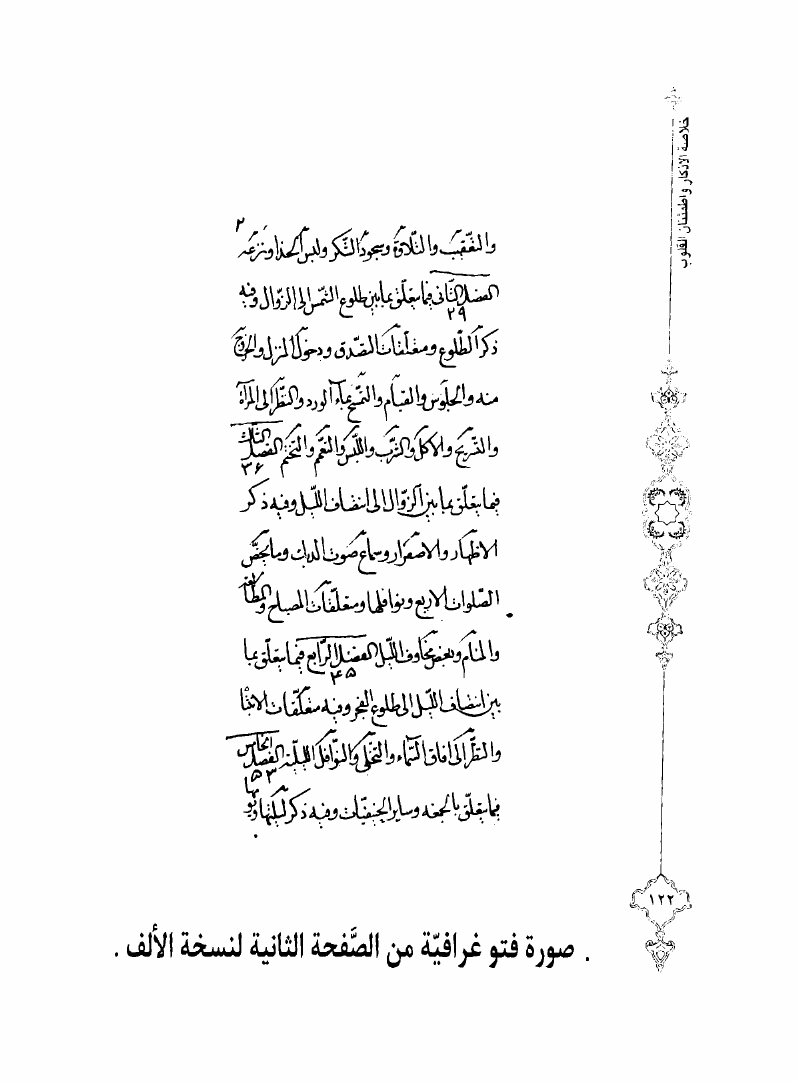 خلاصة الاذكار و اطمئنان القلوب
٢
والتعقيب والتلاوة وسجود الشكر ولبس الحذاء ونزعه
الفصل الثاني فيما يتعلّق بما بين طلوع الشمس الى الزوال وفيه
٢٩
ذكر الطلوع ومتعلّقات التصدق ودخول المنزل والخروج
منه والجلوس والقيام والتمسّح بماء الورد والنظر الى المرآة
والتسريح والاكل والشرب واللبس والتعمم والتختم الفصل الثالث
٣۶
فيما يتعلّق بما بين الزوال الى انتصاف اللّيل وفيه ذكر
الاظهار والاصفرار وسماع صوت الديك وما يخصّ
الصّلوات الاربع ونوافلها ومتعلّقات المصباح والمطالعة
والمنام وبعض مخاوف اللّيل الفصل الرابع فيما يتعلّق بما
۴۵
بين انتصاف اللّيل الى طلوع الفجر وفيه متعلّقات الانتباه
والنظر الى افاق السّماء والتخلّي والنّوافل اللّيليّة الفصل الخامس
۵٣
فيما يتعلّق بالجمعة وساير الحنيفيّات وفيه ذكر ليلتها
١٢٢
. صورة فتو غرافيّة من الصَّفحة الثانية لنسخة الألف .